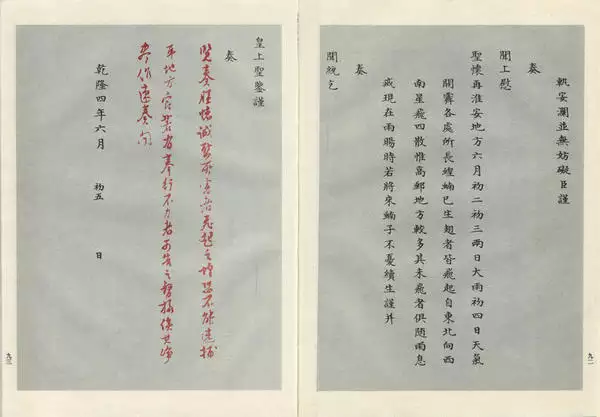 軌安瀾並無妨礙臣謹
奏
聞上慰
聖懷再淮安地方六月初二初三兩日大雨初四日天氣
開霽各處所長蝗蝻已生翅者皆飛起自東北向西
南星飛四散惟高郵地方較多其未飛者俱隨雨息
滅現在雨暘時若將來蝻子不憂續生謹并
奏
聞統乞
九二
皇上聖鑒謹
奏
覽奏誠所害者飛起之蝗恐不能速捕
耳地方官若有奉行不力者可告之督撫俟其
作速奏聞
乾隆四年六月 初五 日
九三